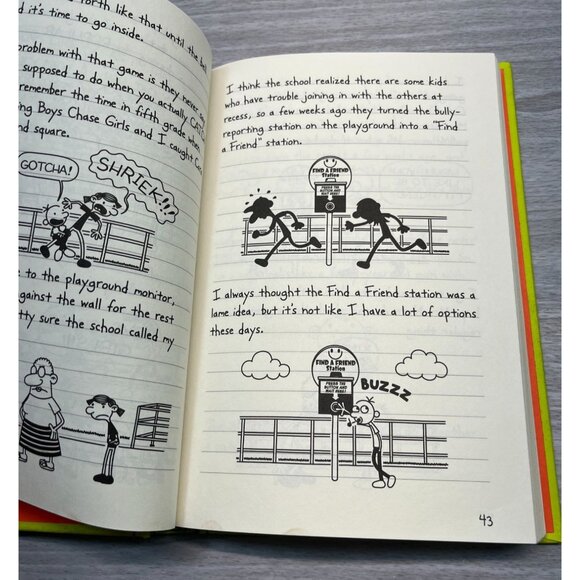 forth like that until the bell
it's time to go inside.
problem with that game is they never
supposed to do when you actually
remember the time in fifth grade when
Boys Chase Girls and I caught
square.
GOTCHA!
SHRIEK!!!
to the playground monitor,
against the wall for the rest
sure the school called my
I think the school realized there are some kids
who have trouble joining in with the others at
recess, so a few weeks ago they turned the bully-
reporting station on the playground into a "Find
a Friend" station.
FIND A FRIEND
Station
PRESS THE
BUTTON AND
WAIT HERE!
I always thought the Find a Friend station was a
lame idea, but it's not like I have a lot of options
these days.
FIND A FRIEND
Station
PRESS THE
BUTTON AND
WAIT HERE!
BUZZZ
43